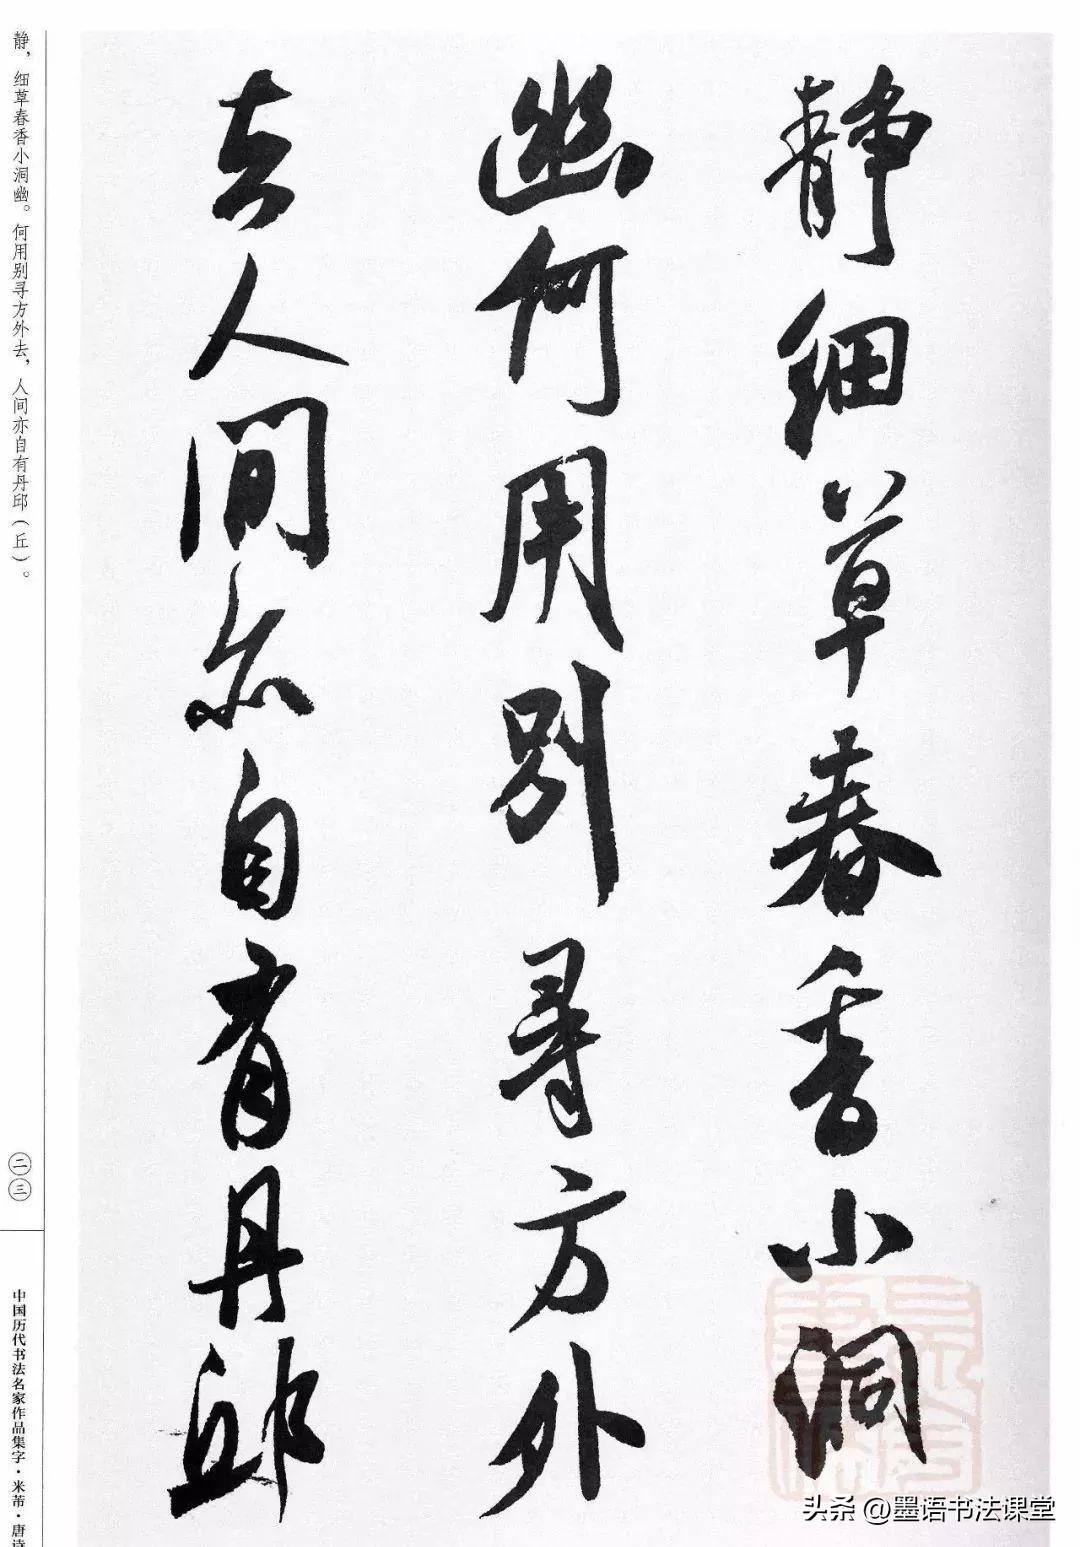 静细草春香小洞
幽何用别寻方外
去人间亦自有丹邱
静，细草春香小洞幽。何用别寻方外去，人间亦自有丹邱（丘）。
二三
中国历代书法名家作品集字·米芾·唐诗
头条@墨语书法课堂